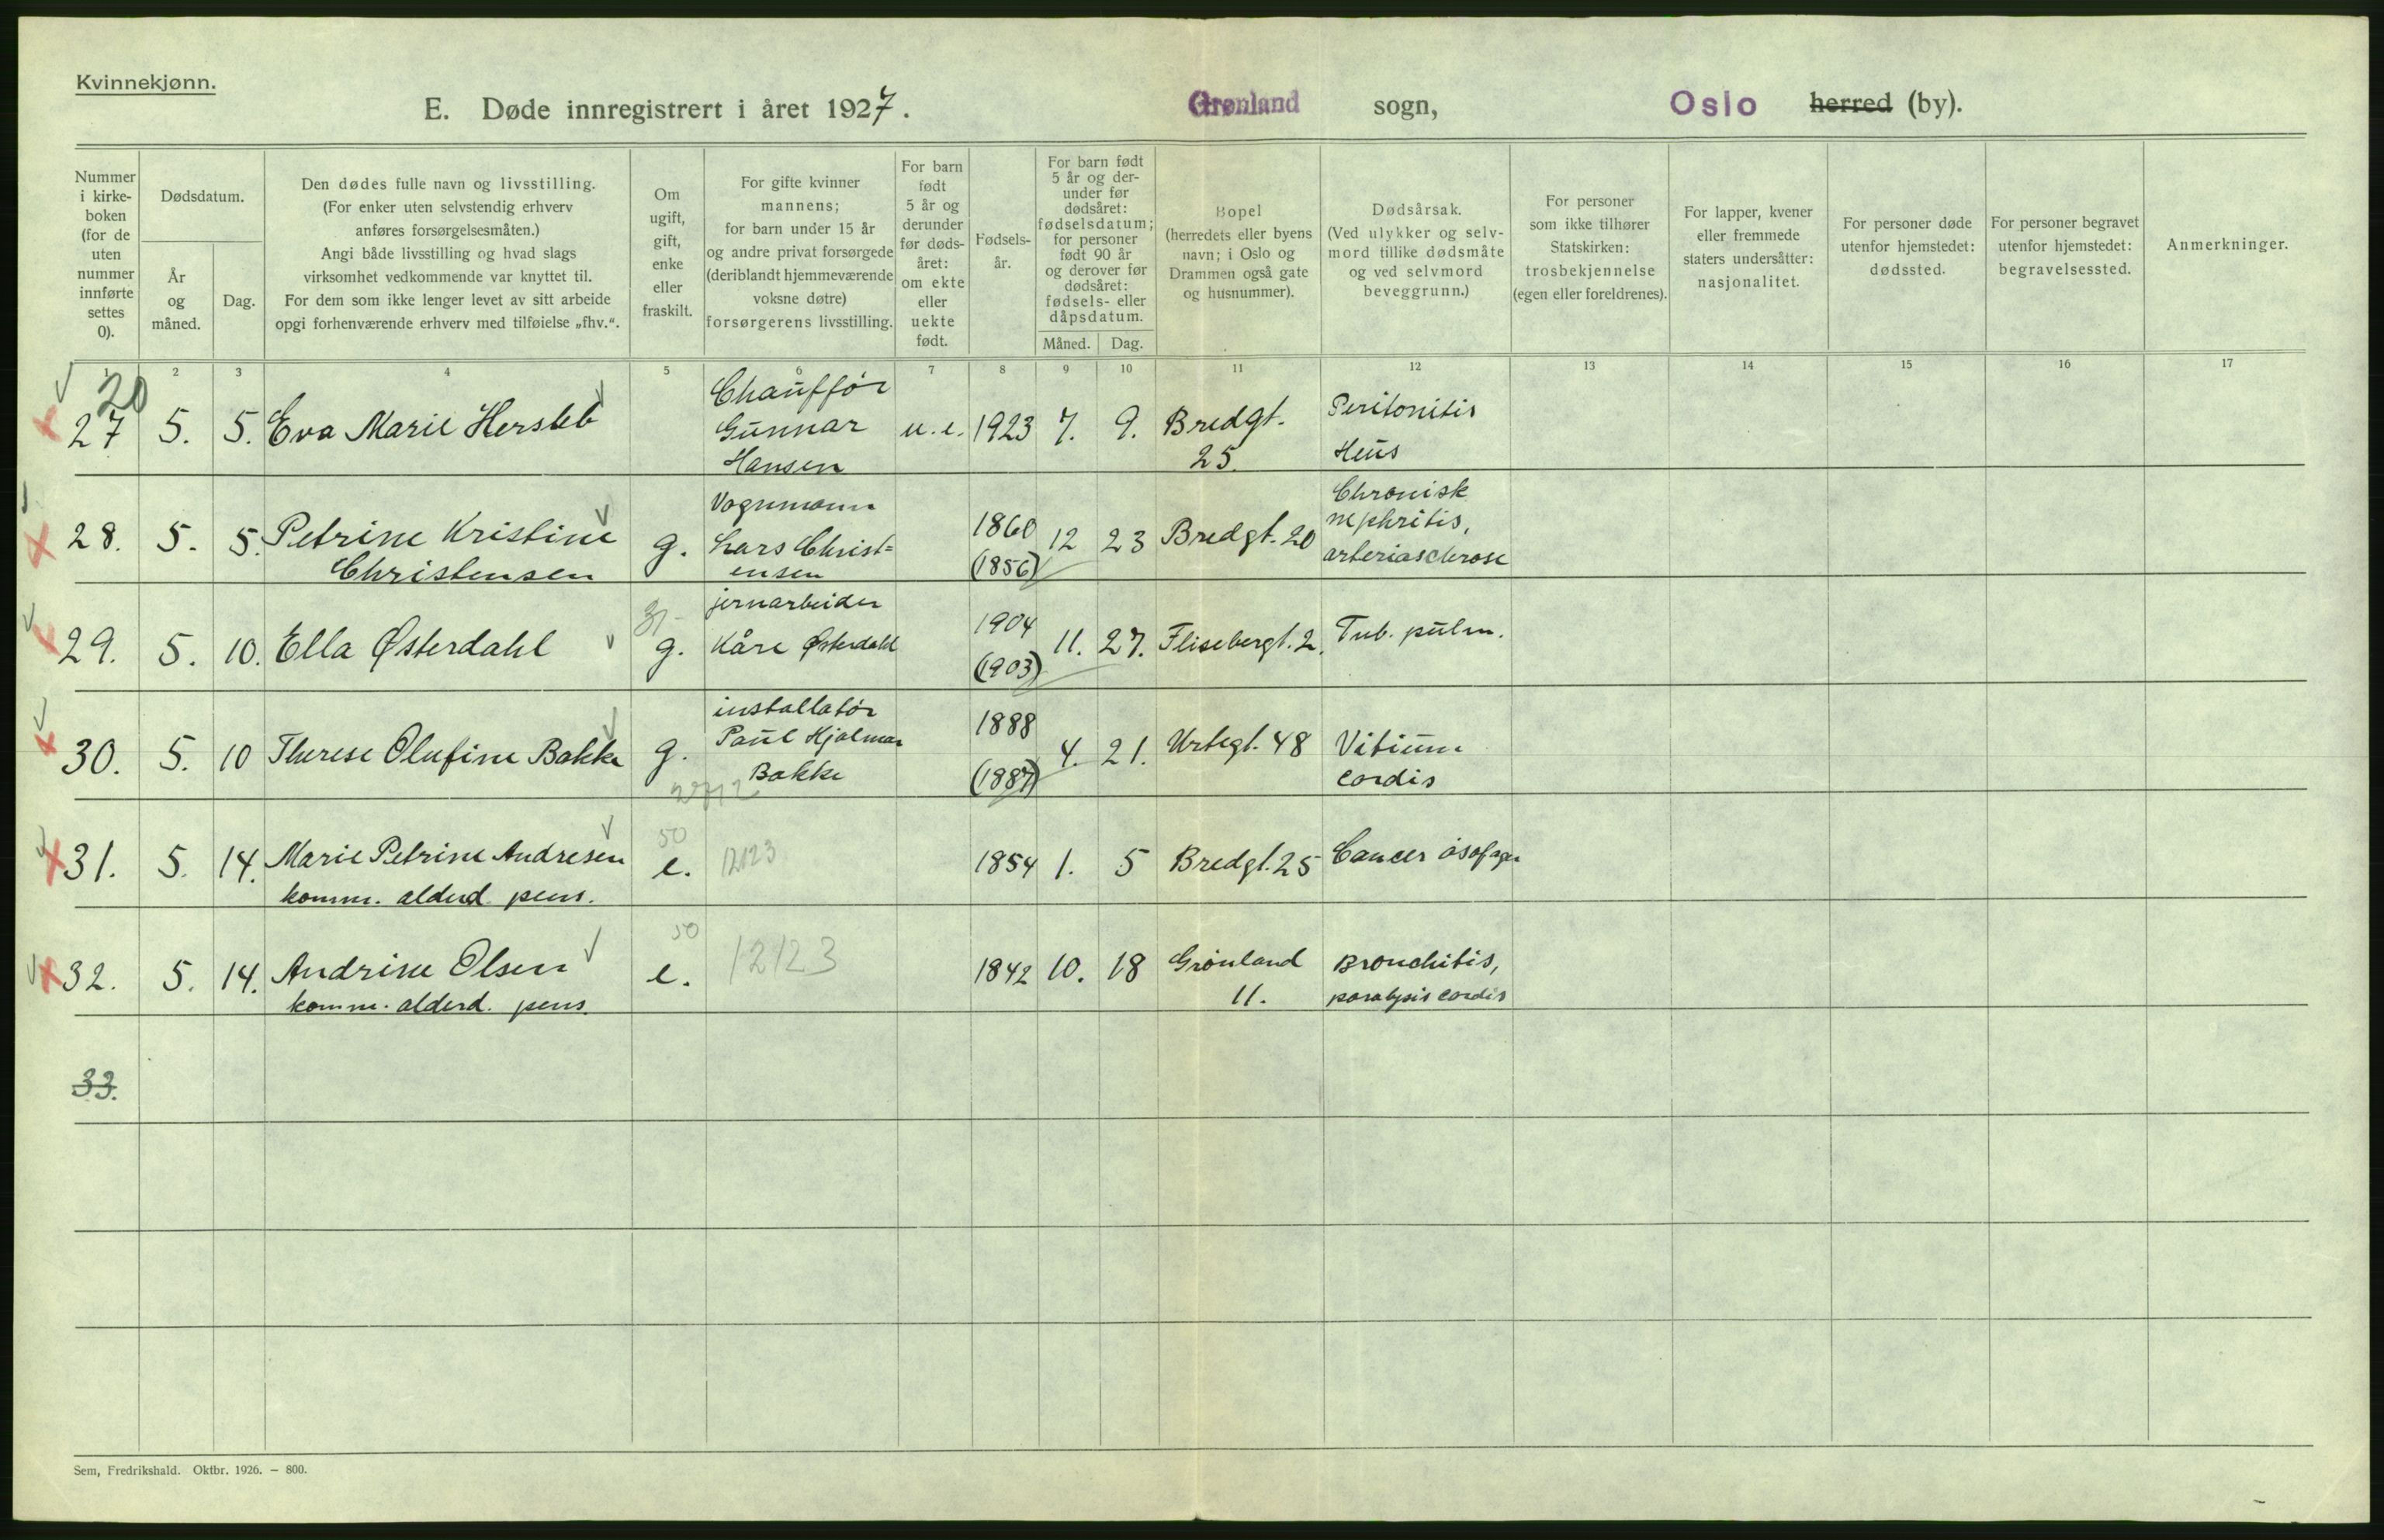 Kvinnekjønn.
E. Døde innregistrert i året 1927. Grønland sogn, Oslo herred (by).
Nummer i kirke- boken (for de uten nummer innførte settes 0).
Dødsdatum.
År og måned.
Dag.
Den dødes fulle navn og livsstilling.
(For enker uten selvstendig erhverv
anføres forsørgelsesmåten.)
Angi både livsstilling og hvad slags
virksomhet vedkommende var knyttet til.
For dem som ikke lenger levet av sitt arbeide
opgi forhenværende erhverv med tilføielse „fhv.“.
Om ugift, gift, enke eller fraskilt.
For gifte kvinner
mannens;
for barn under 15 år
og andre privat forsørgede
(deriblandt hjemmeværende
voksne døtre)
forsørgerens livsstilling.
For barn født 5 år og derunder før døds- året: om ekte eller uekte født.
Fødsels- år.
For barn født 5 år og der- under før dødsåret: fødselsdatum; for personer født 90 år og derover før dødsåret: fødsels- eller dåpsdatum.
Måned. Dag.
Bopel
(herredets eller byens
navn; i Oslo og
Drammen også gate
og husnummer).
Dødsårsak.
(Ved ulykker og selv-
mord tillike dødsmåte
og ved selvmord
beveggrunn.)
For personer
som ikke tilhører
Statskirken:
trosbekjennelse
(egen eller foreldrenes).
For lapper, kvener
eller fremmede
staters undersåtter:
nasjonalitet.
For personer døde
utenfor hjemstedet:
dødssted.
For personer begravet
utenfor hjemstedet:
begravelsessted.
Anmerkninger.
1 2 3 4 5 6 7 8 9 10 11 12 13 14 15 16 17
20
27 5. 5. Eva Marie Hersleb Chauffør Gunnar Hansen u.e. 1923 7. 9. Bredgt. 25. Peritonitis Ileus
28. 5. 5. Petrine Kristine Christensen g. Vognmann Lars Christ= ensen 1860 (1856) 12 23 Bredgt. 20 Chronisk nephritis, arteriasclerose
29. 5. 10. Ella Østerdahl g. jernarbeider Kåre Østerdahl 1904 (1903) 11. 27. Flisebergt. 2. Tub. pulm.
30. 5. 10 Therese Olufine Bakke g. installatør Paul Hjalmar Bakke 1888 (1887) 4. 21. Urtegt. 48 Vitium cordis
31. 5. 14. Marie Petrine Andresen komm. alderd. pens. 50 e. 12123 1854 1. 5 Bredgt. 25 Cancer øsofager
32. 5. 14. Andrine Olsen komm. alderd. pens. 50 e. 12123 1842 10. 18 Grønland 11. Bronchitis, paralysis cordis
33.
Sem, Fredrikshald. Oktbr. 1926. — 800.